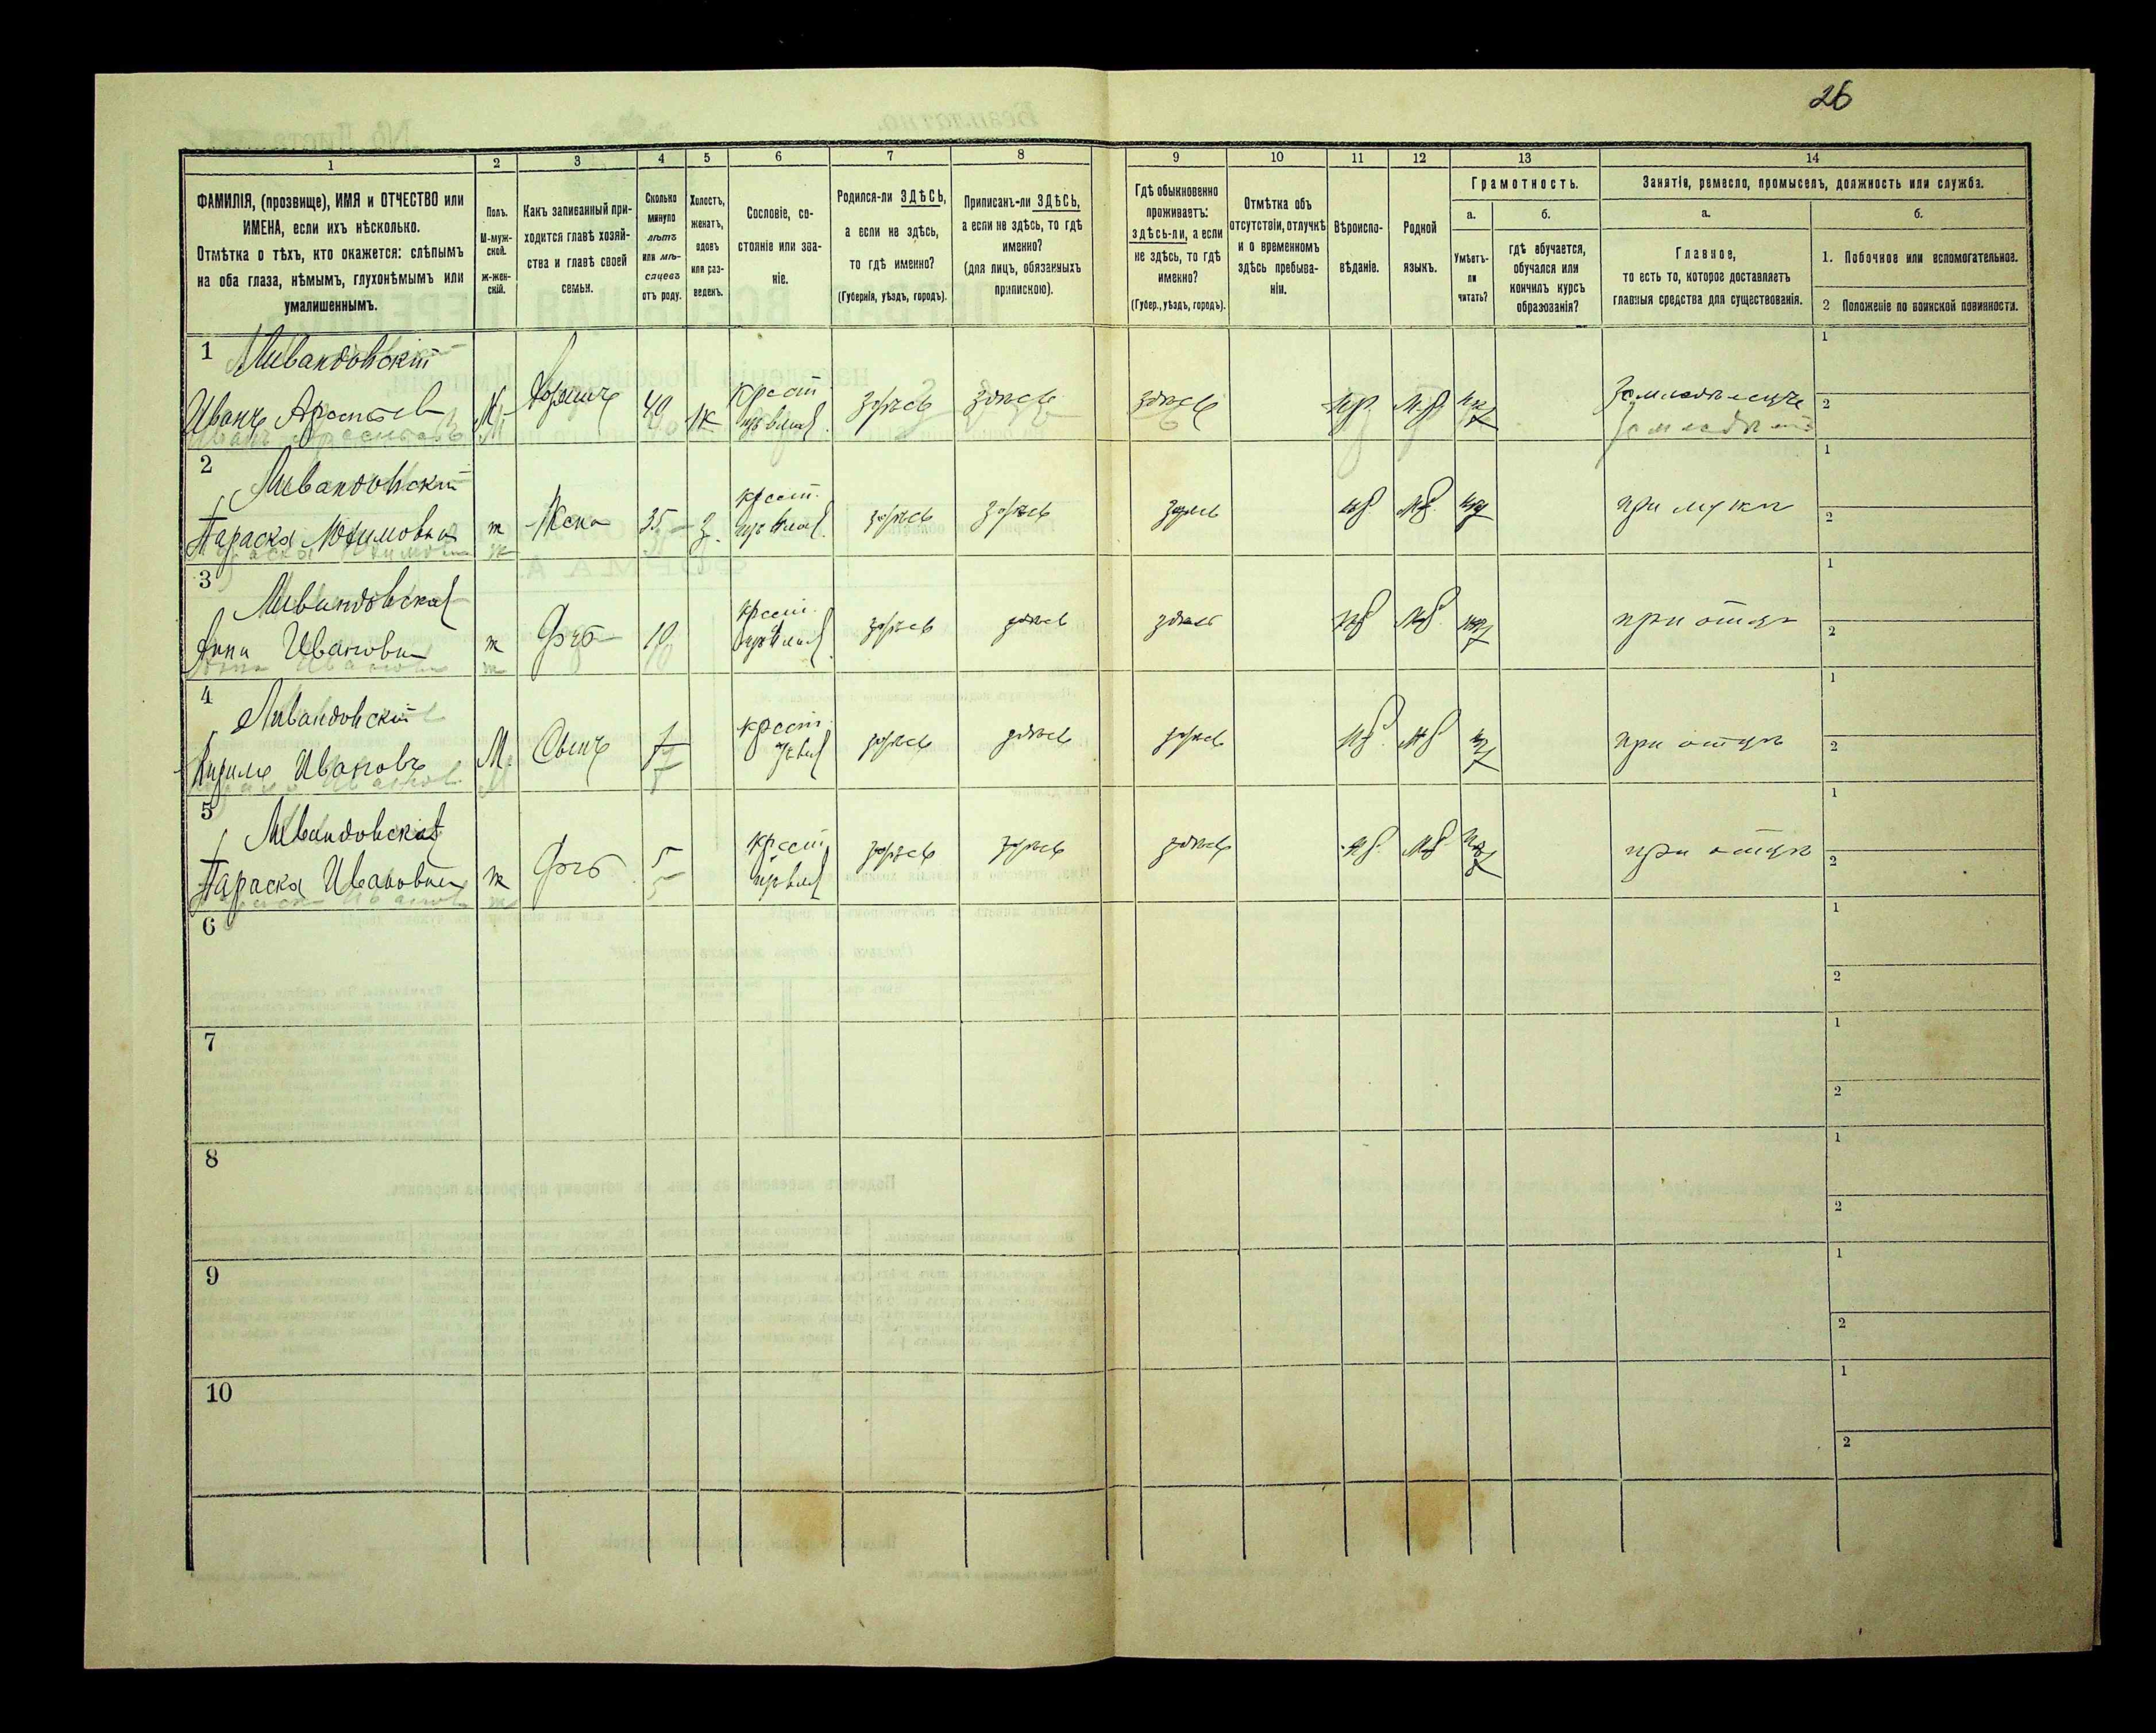 26
1
2
3
4
5
6
7
8
9
10
11
12
13
14
ФАМИЛІЯ, (прозвище), ИМЯ и ОТЧЕСТВО или
ИМЕНА, если ихъ нѣсколько.
Отмѣтка о тѣхъ, кто окажется: слѣпымъ
на оба глаза, нѣмымъ, глухонѣмымъ или
умалишеннымъ.
Полъ.
М-муж-
ской.
ж-жен-
скій.
Какъ записанный при-
ходится главѣ хозяй-
ства и главѣ своей
семьи.
Сколько
минуло
лѣтъ
или мѣ-
сяцевъ
отъ роду.
Холостъ,
женатъ,
вдовъ
или раз-
веденъ.
Сословіе, со-
стояніе или зва-
ніе.
Родился-ли ЗДѢСЬ,
а если не здѣсь,
то гдѣ именно?
(Губернія, уѣздъ, городъ).
Приписанъ-ли ЗДѢСЬ,
а если не здѣсь, то гдѣ
именно?
(для лицъ, обязанныхъ
припискою).
Гдѣ обыкновенно
проживаетъ:
здѣсь-ли, а если
не здѣсь, то гдѣ
именно?
(Губер., уѣздъ, городъ).
Отмѣтка объ
отсутствіи, отлучкѣ
и о временномъ
здѣсь пребыва-
ніи.
Вѣроиспо-
вѣданіе.
Родной
языкъ.
Грамотность.
а.
Умѣетъ-
ли
читать?
б.
гдѣ обучается,
обучался или
кончилъ курсъ
образованія?
Занятіе, ремесло, промыселъ, должность или служба.
а.
Главное,
то есть то, которое доставляетъ
главныя средства для существованія.
б.
1. Побочное или вспомогательное.
2 Положеніе по воинской повинности.
1
Ливандовскій
Иванъ
М
40
крест
здѣсь
здѣсь
здѣсь
1
2
2
Ливандовскій
Параска
ж
Жена
35
З.
крест.
здѣсь
здѣсь
здѣсь
при мужѣ
1
2
3
Ливандовская
Анна Ивановна
ж
Дочь
10
крест.
здѣсь
здѣсь
здѣсь
при отцѣ
1
2
4
Ливандовскій
Кирилъ Ивановъ
М.
Сынъ
7
крест.
здѣсь
здѣсь
здѣсь
при отцѣ
1
2
5
Ливандовская
Параска Ивановна
ж
Дочь
5
крест.
здѣсь
здѣсь
здѣсь
при отцѣ
1
2
6
1
2
7
1
2
8
1
2
9
1
2
10
1
2